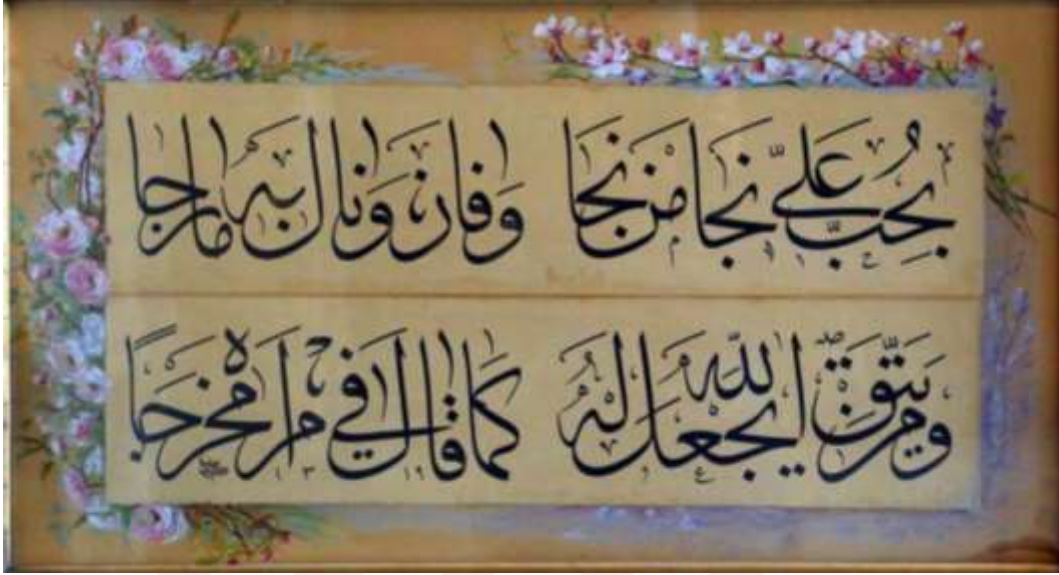 بِحُبِّ عَلِيّ نجا من نجا وفاز ونال به ما رجا
ومن يتق الله يجعل له كما قال في امره مخرجاً